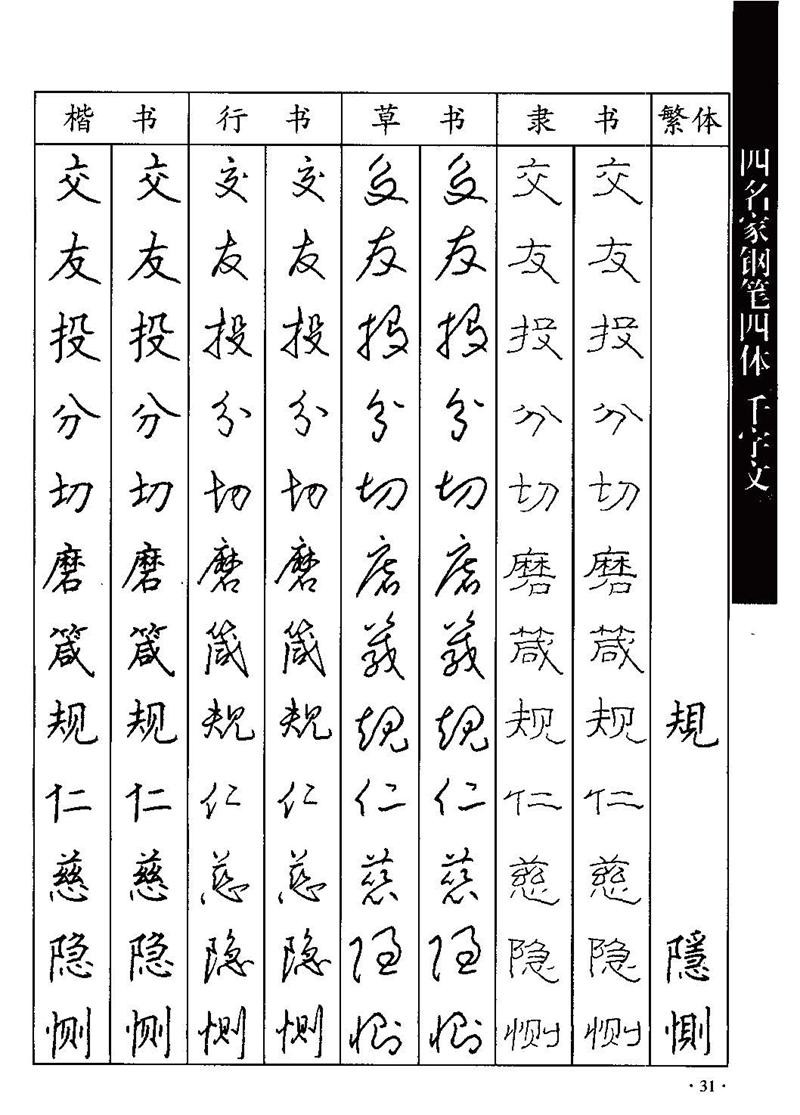 楷 书 行 书 草 书 隶 书 繁体
交 交 交 交 交 交 交 交
友 友 友 友 友 友 友 友
投 投 投 投 投 投 投 投
分 分 分 分 分 分 分 分
切 切 切 切 切 切 切 切
磨 磨 磨 磨 磨 磨 磨 磨
箴 箴 箴 箴 箴 箴 箴 箴
规 规 规 规 规 规 规 规 規
仁 仁 仁 仁 仁 仁 仁 仁
慈 慈 慈 慈 慈 慈 慈 慈
隐 隐 隐 隐 隐 隐 隐 隐 隱
恻 恻 恻 恻 恻 恻 恻 恻 惻
四名家钢笔四体 千字文
·31·